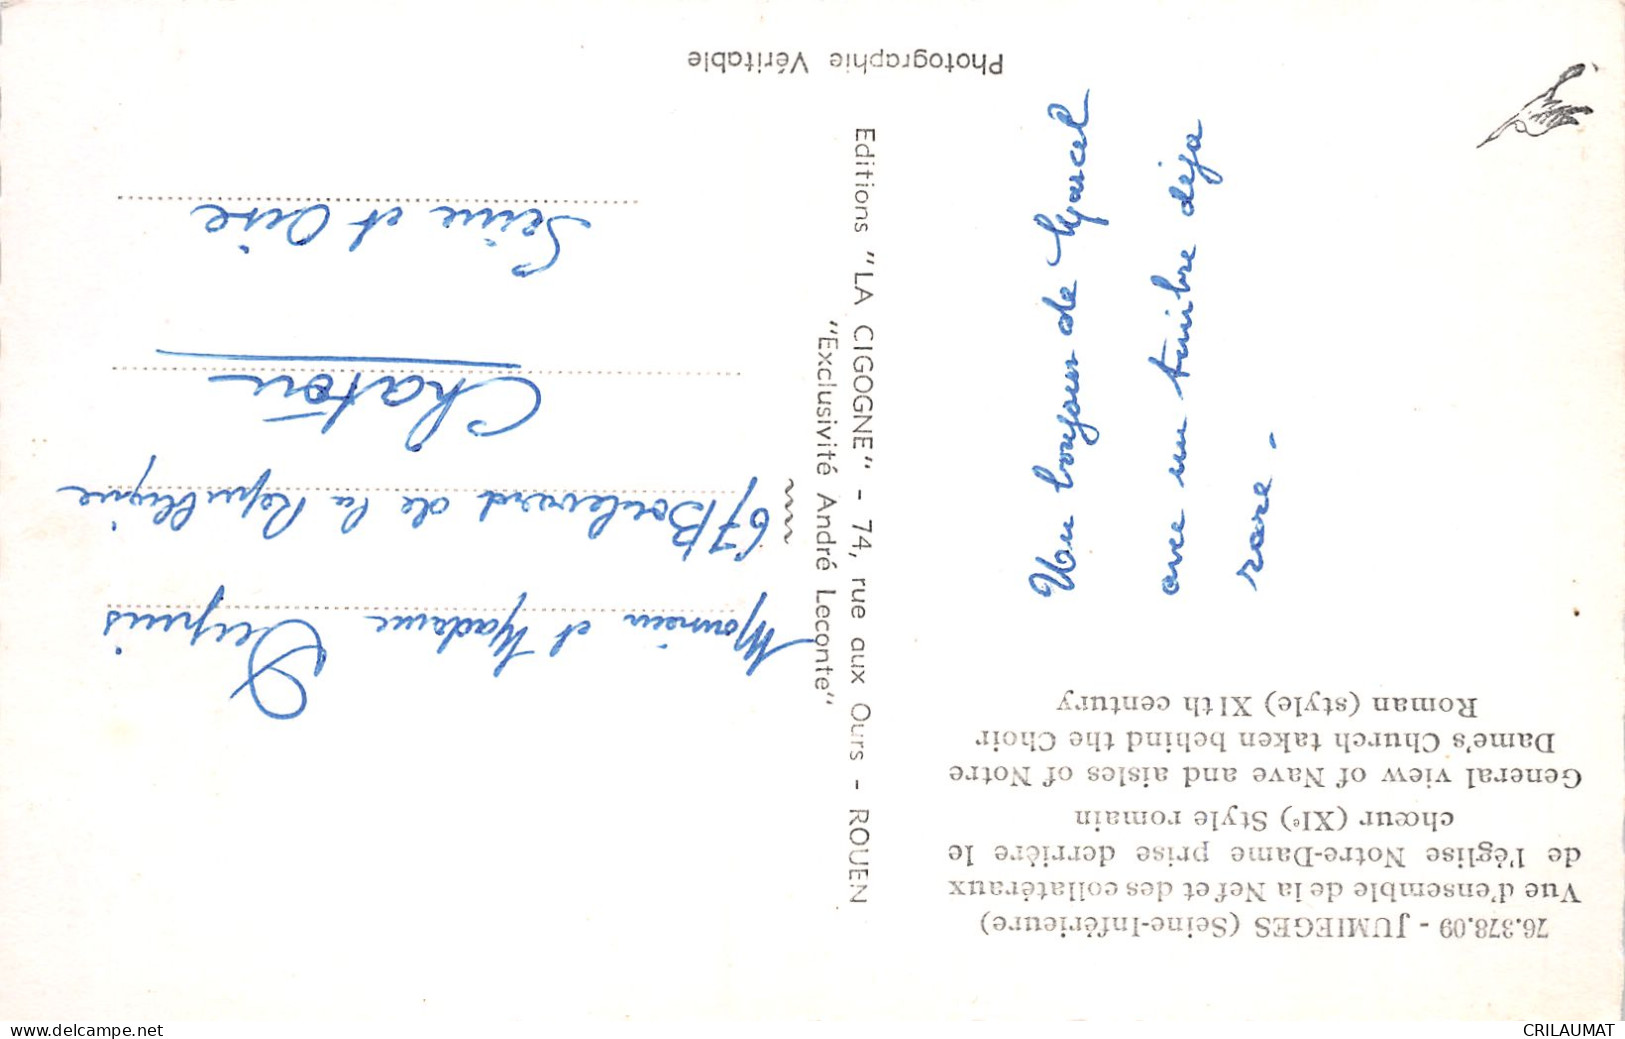 76.378.09 - JUMIEGES (Seine-Inférieure)
Vue d'ensemble de la Nef et des collatéraux
de l'église Notre-Dame prise derrière le
chœur (XIᵉ) Style romain
General view of Nave and aisles of Notre
Dame's Church taken behind the Choir
Roman (style) XIth century
Un bonjour de Marcel
avec un timbre déja
rare -
Editions "LA CIGOGNE" - 74, rue aux Ours - ROUEN
"Exclusivité André Leconte"
Photographie Véritable
Monsieur et Madame Dupuis
67 Boulevard de la République
Chatou
Seine et Oise
www.delcampe.net
CRILAUMAT